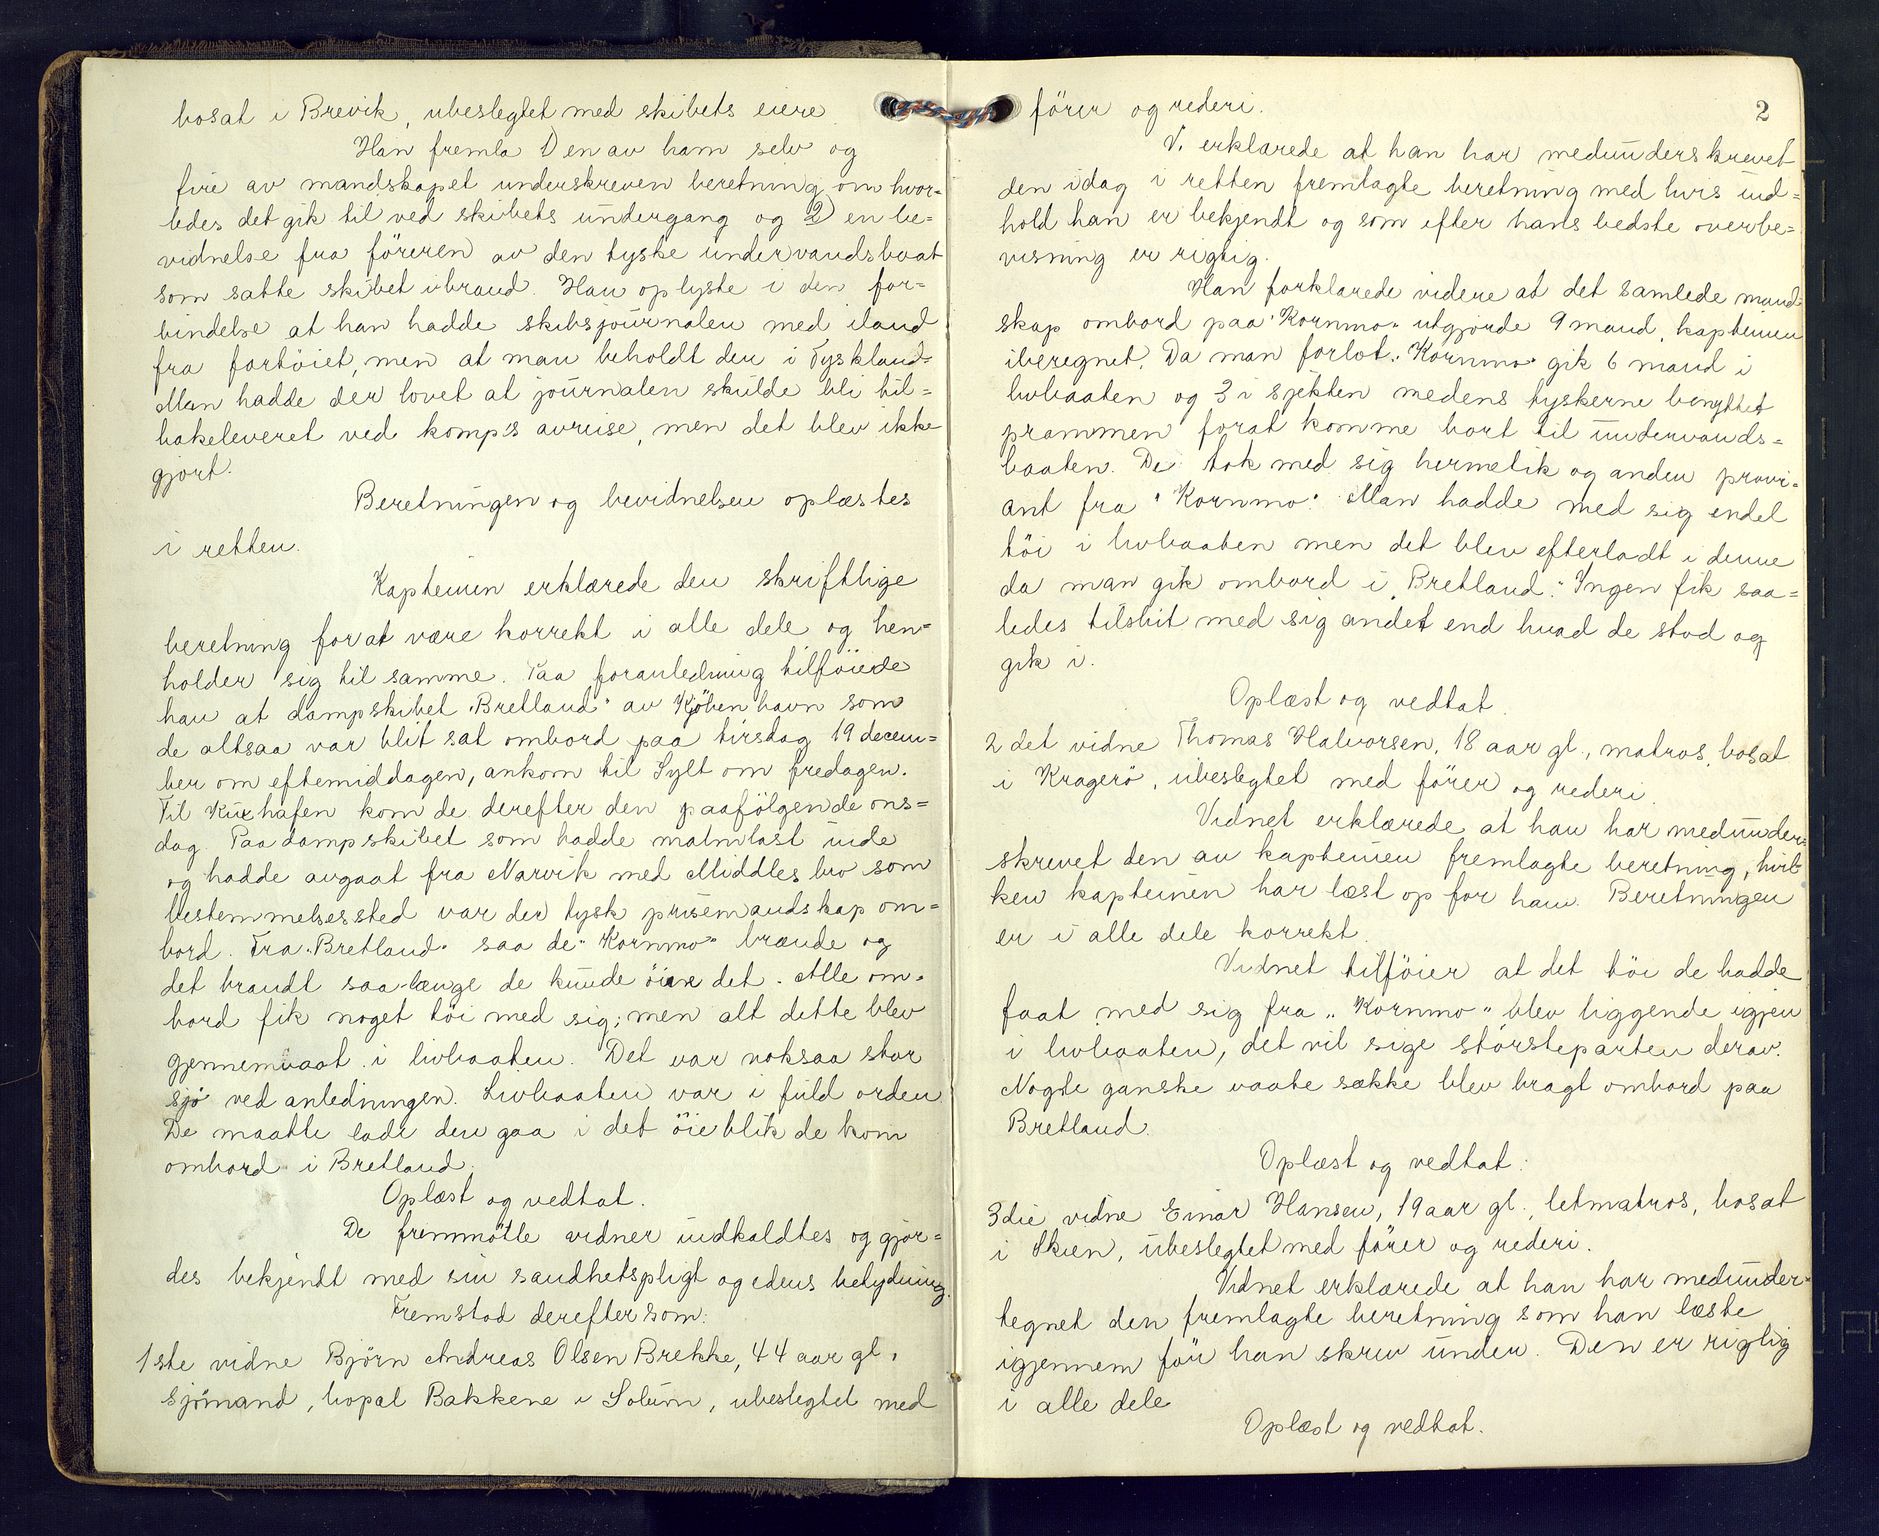 bosat i Brevik, ubeslegtet med skibets eiere.
Han fremla 1) en av ham selv og
fire av mandskapet underskreven beretning om hvor-
ledes det gik til ved skibets undergang og 2) en be-
vidnelse fra föreren av den tyske undervandsbaat
som satte skibet ibrand. Han oplyste i den for-
bindelse at han hadde skibsjournalen med iland
fra fartöiet, men at man beholdt den i Tyskland.
Man hadde der lovet at journalen skulde bli til-
bakeleveret ved komp's avreise, men det blev ikke
gjort.
Beretningen og bevidnelsen oplæstes
i retten.
Kapteinen erklærede den skriftlige
beretning forat være korrekt i alle dele og hen-
holder sig til samme. Paa foranledning tilföiede
han at dampskibet "Bretland" av Kjøbenhavn som
de altsaa var blit sat ombord paa tirsdag 19 decem-
ber om eftemiddagen, ankom til Sylt om fredagen.
Til Kuxhafen kom de derefter den paafölgende ons-
dag. Paa dampskibet som hadde malmlast inde
og hadde avgaat fra Narvik med Middlesbro som
bestemmelsessted var der tysk prisemandskap om-
bord. Fra "Bretland" saa de "Kornmo" brænde og
det brandt saalænge de kunde öine det. Alle om-
bord fik noget töi med sig; men alt dette blev
gjennemvaat i livbaaten. Det var noksaa stor
sjö ved anledningen. Livbaaten var i fuld orden
De maatte lade den gaa i det öieblik de kom
ombord i Bretland.
Oplæst og vedtat.
De fremmötte vidner indkaldtes og gjor-
des bekjendt med sin sandhetspligt og edens betydning.
Fremstod derefter som:
1ste vidne Bjørn Andreas Olsen Brekke, 44 aar gl.
sjömand, bopæl Bakkene i Solum, ubeslegtet med
2
förer og rederi.
V. erklærede at han har medunderskrevet
den idag i retten fremlagte beretning med hvis ind-
hold han er bekjendt og som efter hans bedste overbe-
visning er rigtig.
Han forklarede videre at det samlede mand-
skap ombord paa "Kornmo" utgjorde 9 mand, kapteinen
iberegnet. Da man forlot "Kornmo" gik 6 mand i
livbaaten og 3 i sjekten medens tyskerne benyttet
prammen forat komme bort til undervands-
baaten. De tok med sig hermetik og anden provi-
ant fra "Kornmo". Man hadde med sig endel
töi i livbaaten men det blev efterladt i denne
da man gik ombord i "Bretland." Ingen fik saa-
ledes tilslut med sig andet end hvad de stod og
gik i.
Oplæst og vedtat.
2det vidne Thomas Halvorsen, 18 aar gl., matros, bosat
i Kragerö, ubeslegtet med förer og rederi.
Vidnet erklærede at han har medunder-
skrevet den av kapteinen fremlagte beretning, hvil-
ken kapteinen har læst op for ham. Beretningen
er i alle dele korrekt.
Vidnet tilföier at det töi de hadde
faat med sig fra "Kornmo" blev liggende igjen
i livbaaten, det vil sige störsteparten derav.
Nogle ganske vaate sække blev bragt ombord paa
Bretland.
Oplæst og vedtat:
3die vidne Einar Hansen, 19 aar gl., letmatros, bosat
i Skien, ubeslegtet med förer og rederi.
Vidnet erklærede at han har medunder-
tegnet den fremlagte beretning som han læste
igjennem för han skrev under. Den er rigtig
i alle dele
Oplæst og vedtat.